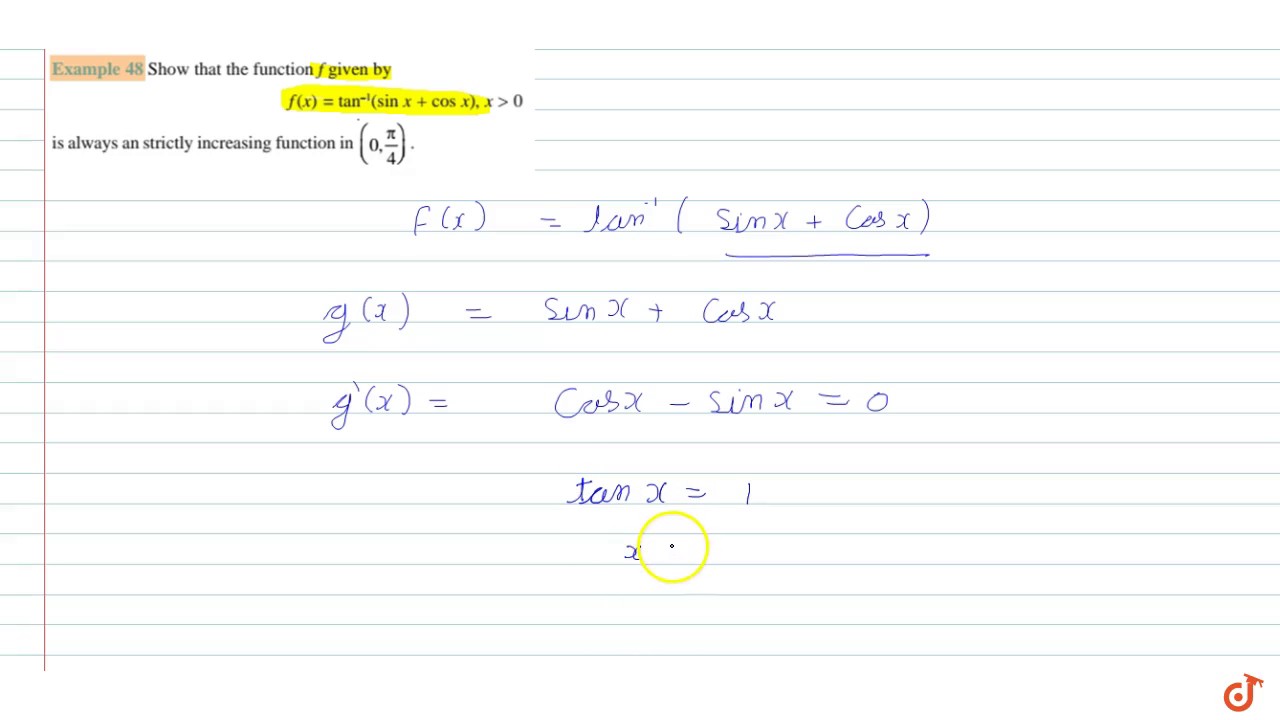 Example 48 Show that the function f given by
f(x) = tan⁻¹(sin x + cos x), x > 0
is always an strictly increasing function in (0, π/4) .
F(x) = tan⁻¹ ( sinx + Cosx)
g(x) = sinx + Cosx
g'(x) = Cosx - sinx = 0
tan x = 1
x